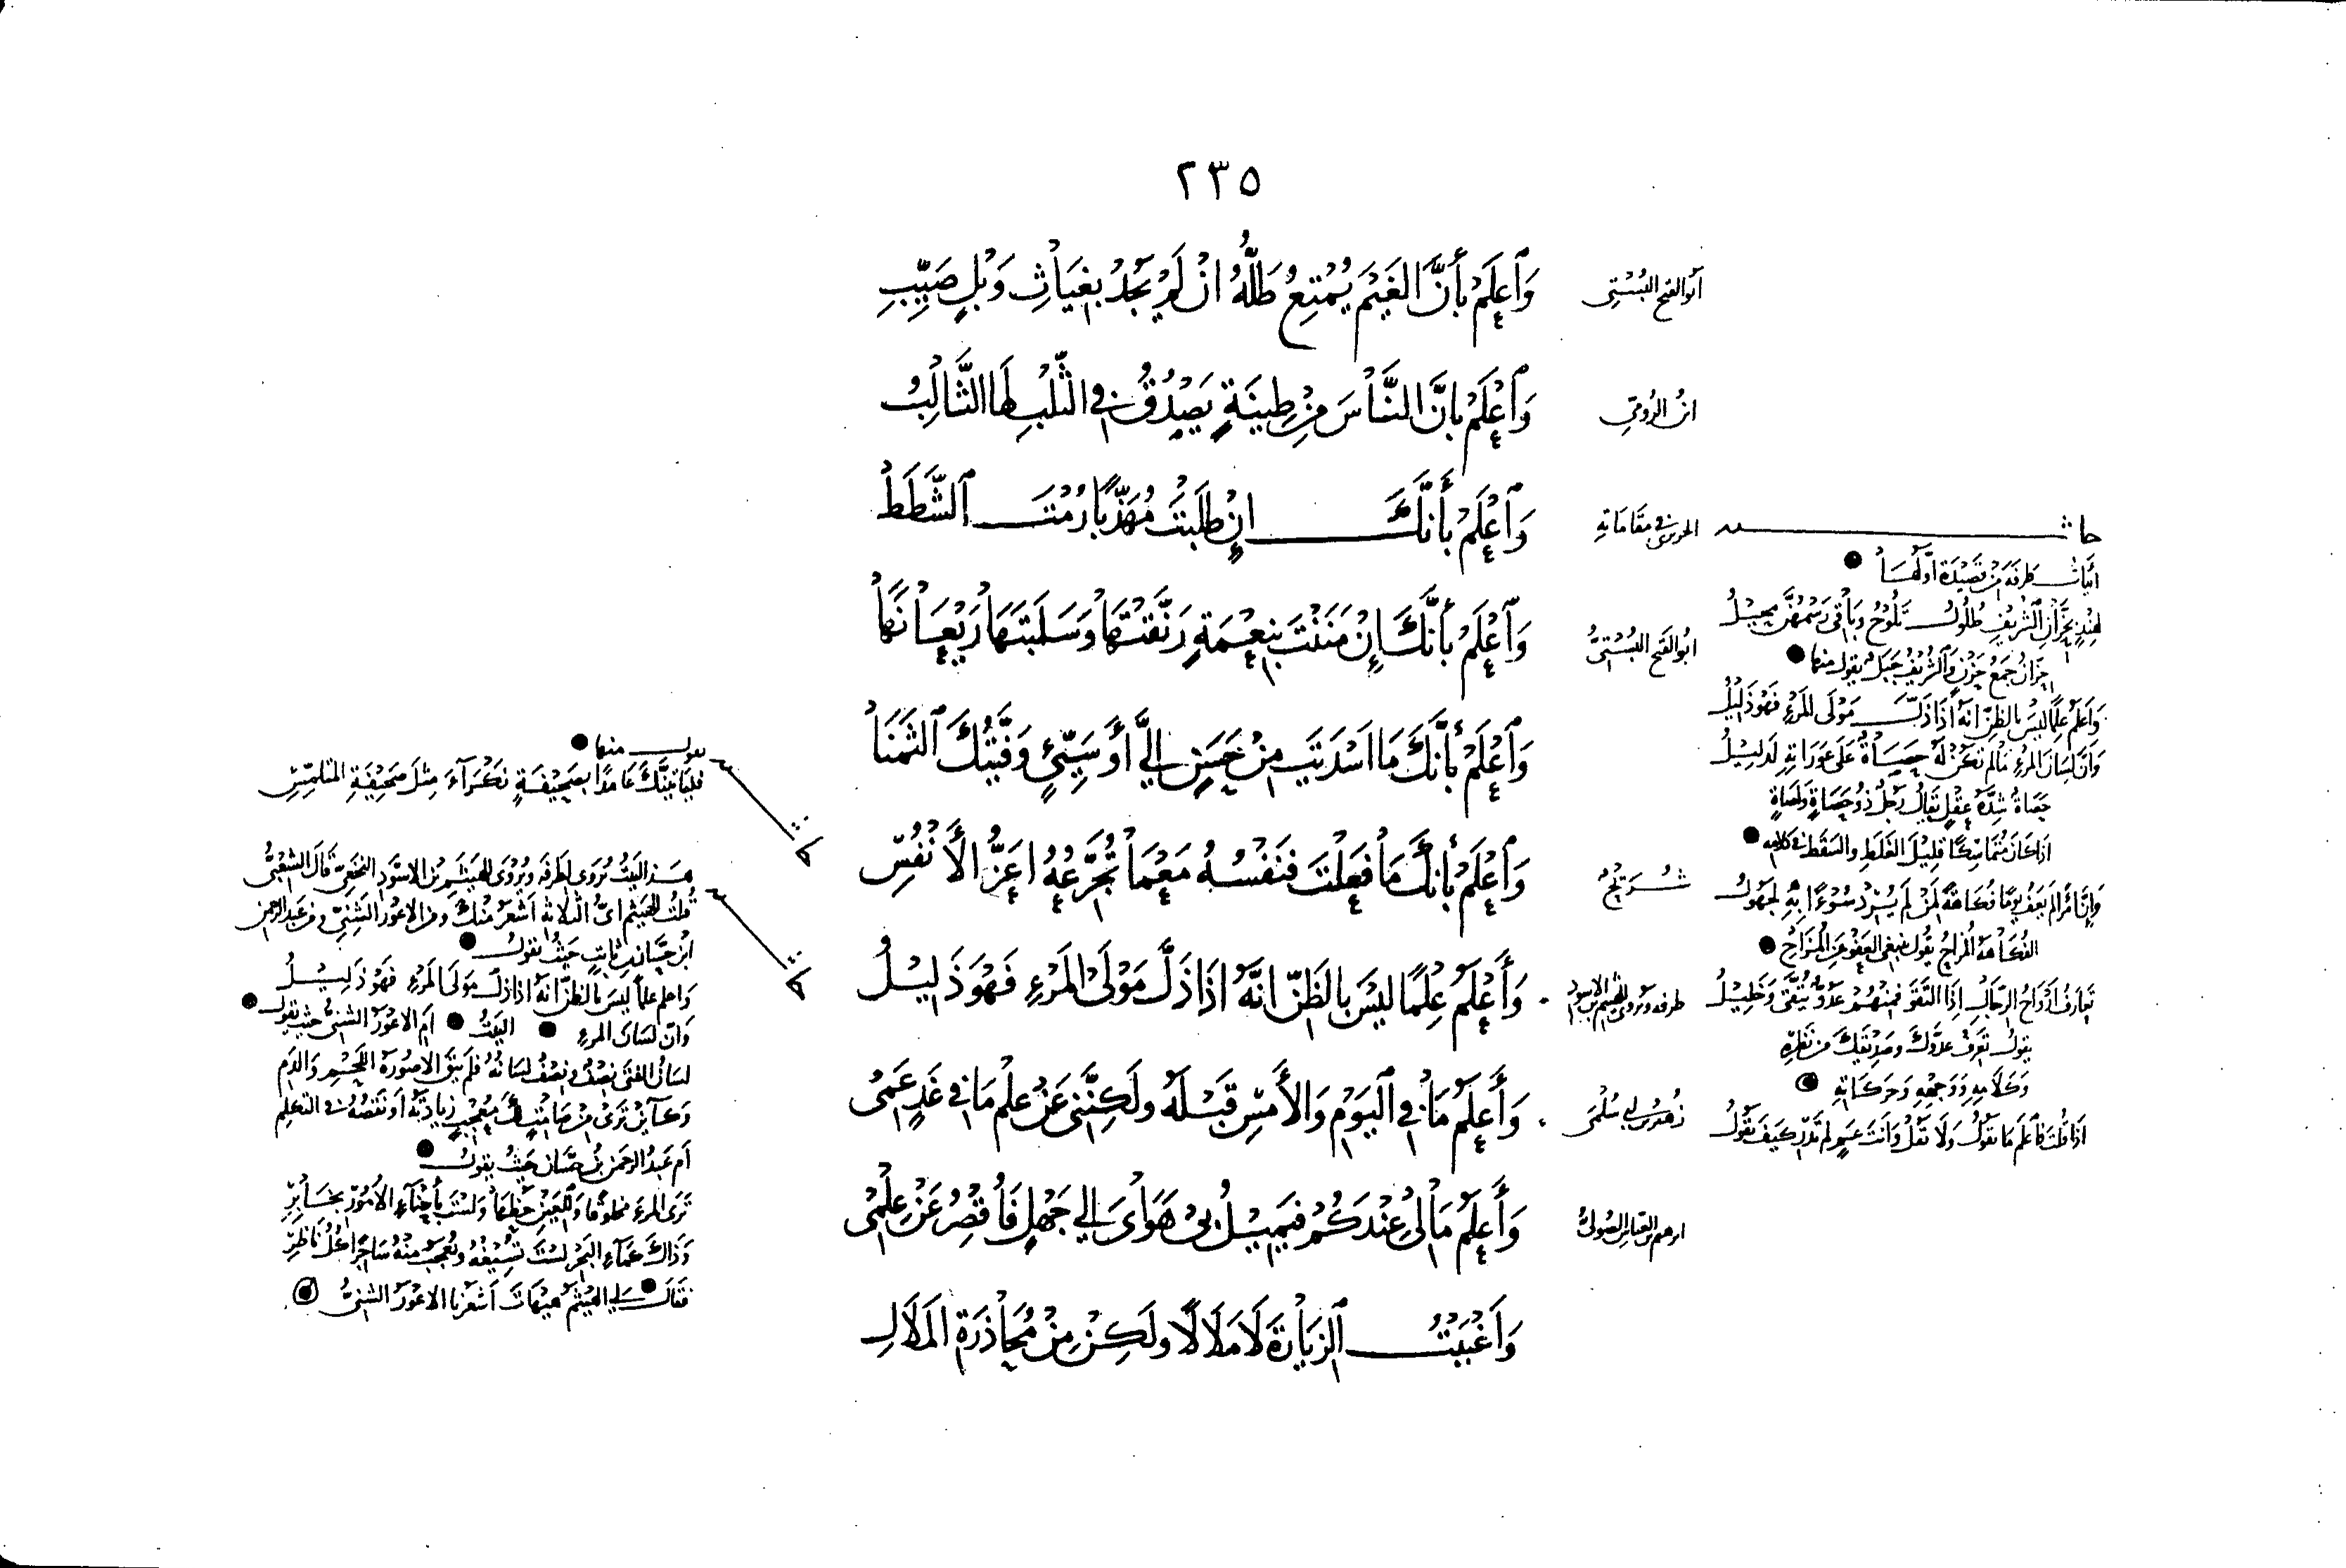 ٢٣٥
أبو الفتح البُستي
وَاَعلَم بأنَّ الغَيمَ يُمتِعُ طَلُّهُ ان لَم يَجُد بغِيَاثِ وَبلٍ صَيِّبِ
ابن الرومي
وَاَعلَم بانَّ النَّاسَ مِن طِينَةٍ يَصدُقُ في الثَّلبِ لَها الثَّالِبُ
الحريري في مقاماته
وَاَعلَم بأنَّكَ ان طلَبتَ مُهَذَّبًا رُمتَ الشَّطَط
ابُو الفتح البُستيُّ
وَاَعلَم بأنَّكَ إن مَنَنتَ بنِعمَةٍ رَنَّقتَهَا وَسَلَبتَهَا رَيعَانَها
وَاَعلَم بأنَّكَ مَا اَسدَيتَ مِن حَسَنٍ اليَّ أو سَيِّئٍ وَفَّيتُكَ الثمَنَا
شُرَيحٌ
وَاَعلَم بأنَّكَ مَا فعَلتَ فنَفسُهُ مَعَمَا تُجَرِّعُهُ اعَزُّ الأنفُسِ
طرفه ويروى للهيثم بن الاسود
وَأَعلَمُ عِلمًا ليسَ بالظَنِّ انَّهُ اذَا ذَلَّ مَولَى المَرءِ فَهوَ ذَلِيلُ
زهير بن ابي سُلمَى
وَأَعلَمُ مَا في اليَومِ وَالأَمسِ قَبلَهُ ولَكِنَّنى عَن عِلمِ مَا في غَدٍ عَمى
ابرهيم بن العباس الصُوليُّ
وَأَعلَمُ مَا لى عِندَكُم فيَمِيلُ بى هَوَاىَ الي جَهلٍ فَاُقصِرُ عَن عِلمى
وَاَغبَبتُ الزيَارَةَ لَا مَلَالًا ولَكِن مِن مُحَاذَرَةِ المَلَالِ
حاشيه
أبيات طرفة من قصيدة أوّلهَا
لهِندٍ بِحِزَّانِ الشُّرَيفِ طُلُولُ تَلُوحُ وَبَأقى رَسمهُنَّ محِيلُ
حِزّانُ جَمعُ حَزنٍ وَالشُّرَيفُ جَبَلٌ يقول منها
وَاَعلمُ عِلمًا ليسَ بالظنِّ انهُ اذَا ذَلَّ مَولَى المَرءِ فَهوَ ذَلِيلُ
وَانَّ لِسَانَ المرءِ مَا لم تَكُن لَهُ حَصَاةٌ عَلى عَورَاتِهِ لَدَلِيلُ
حَصَاةٌ شِدَّةُ عَقلٍ يُقالُ رَجُلٌ ذُو حَصَاةٍ وَاَصَاةٍ
اذا كانَ مُتمَاسِكًا قلِيلَ الغَلَطِ والسَقَط في كلامِهِ
وَإنَّ امرأً لَم يَعفُ يومًا فُكَاهَةً لمَن لَم يُرِد سُوءًا بِهِ لجَهُولُ
الفُكَاهَةُ المُزَاحُ يقُول ينبغى العَفو عَن المُزَاحِ
تعَارَفُ اَروَاحُ الرِجَالِ اِذَا التقَوا فمِنهُم عَدُوٌّ يُتَّقَى وَخَلِيلُ
يقولُ تعرفُ عدوَّكَ وصَدِيقَكَ من نَظَرِهِ
وَكلَامِهِ وَوَجهِهِ وَحَرَكَاتِهِ
اذَا قلتَ فاَعلَم مَا تقولُ ولَا تقُل وَانتَ عَمٍ لم تَدرِ كيَفَ تقُولُ
يقول منها
فليَا تِينَّكَ غَامدًا بصَحِيفَةٍ نكراَءَ مِثلَ صَحِيفَةِ المتلمِّسِ
هَذا البَيتُ يُروَى لطرفَه ويُروَى للهَيثم بن الاسوَدِ النَخَعِيِّ قَالَ الشَعبىُّ
قُلتُ للهَيثم أىُّ الثلاثهِ أشعَر مِنكَ ومن الاعوَر الشَنِّيِّ ومن عَبد الرحمن
ابن حَسَّان بن ثابتٍ حَيثُ يقولُ
وَاعلم علمًا ليسَ بالظنّ انهُ اذا ذلَّ مَولَى المَرءِ فهوَ ذَلِيلُ
وَانّ لسَانَ المرءِ البَيتُ اَم الاعوَر الشنىُّ حَيث يقولُ
لسَانُ الفتَى نِصفٌ ونصفٌ فؤادُهُ فلَم يبقَ الا صُورَةُ اللَّحمِ وَالدَمِ
وكَاَئِن تَرَى مِن صَامتٍ لَكَ مُعجبٍ زيَادَتُهُ اَو نقصُهُ في التكلمِ
اَم عَبدُ الرحَمن بنُ حسَّان حَيثُ يقولُ
تَرَى المَرءَ مخلوقًا وَللعَين حَظهَا وَلستَ بأحْنَاءِ الأمُورِ بخَابِرِ
وَذَاكَ كمَاَءِ البَحر لستَ تُسِيغُهُ ويُعجبُ مِنهُ سَاجيًا كلُّ نَاظرِ
فقَالَ لي الهَيثمُ هيهَاتَ أشعَرنا الاعوَرُ الشنىُّ